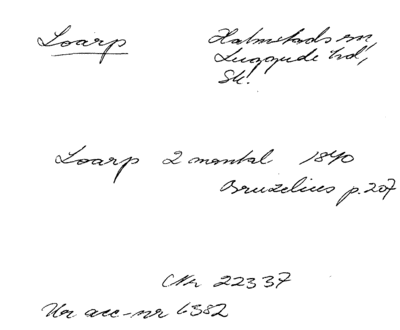 Loarp
Halmstads sn,
Luggude hd,
Sk.
Loarp 2 mantal 1840
Bruzelius p. 207
CNr 22337
Ur acc-nr 6382